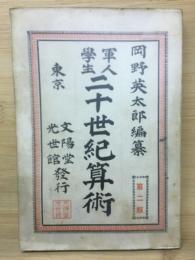 岡野英太郎編纂
軍人
學生
二十世紀算術
第二版
東京
文陽堂
光世館
發行